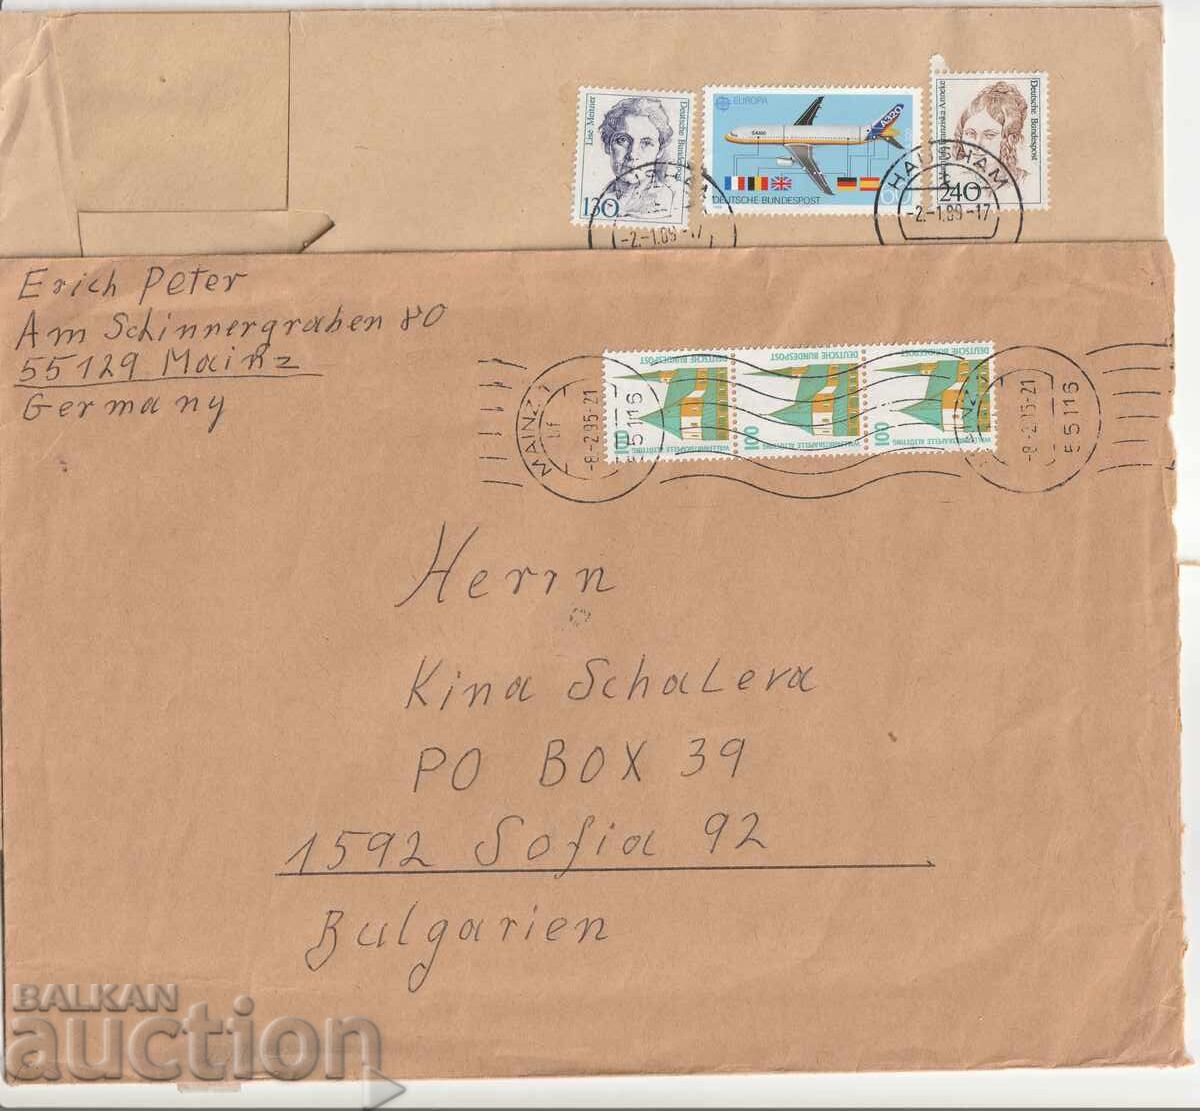 Lise Meitner
Deutsche Bundespost
130
EUROPA
A320
60
DEUTSCHE BUNDESPOST
Anneke
Deutsche Bundespost
240
HAUSHAM
-2.-1.89-17
HAUSHAM
-2.-1.89-17
Erich Peter
Am Schinnergraben 80
55129 Mainz
Germany
MAINZ 1
-8.-2.95-21
55116
DEUTSCHE BUNDESPOST
100
WALLFAHRTSKAPELLE ALTÖTTING
DEUTSCHE BUNDESPOST
100
WALLFAHRTSKAPELLE ALTÖTTING
DEUTSCHE BUNDESPOST
100
WALLFAHRTSKAPELLE ALTÖTTING
MAINZ 1
-8.-2.95-21
55116
Herrn
Kina Schaleva
PO BOX 39
1592 Sofia 92
Bulgarien
BALKAN
auction